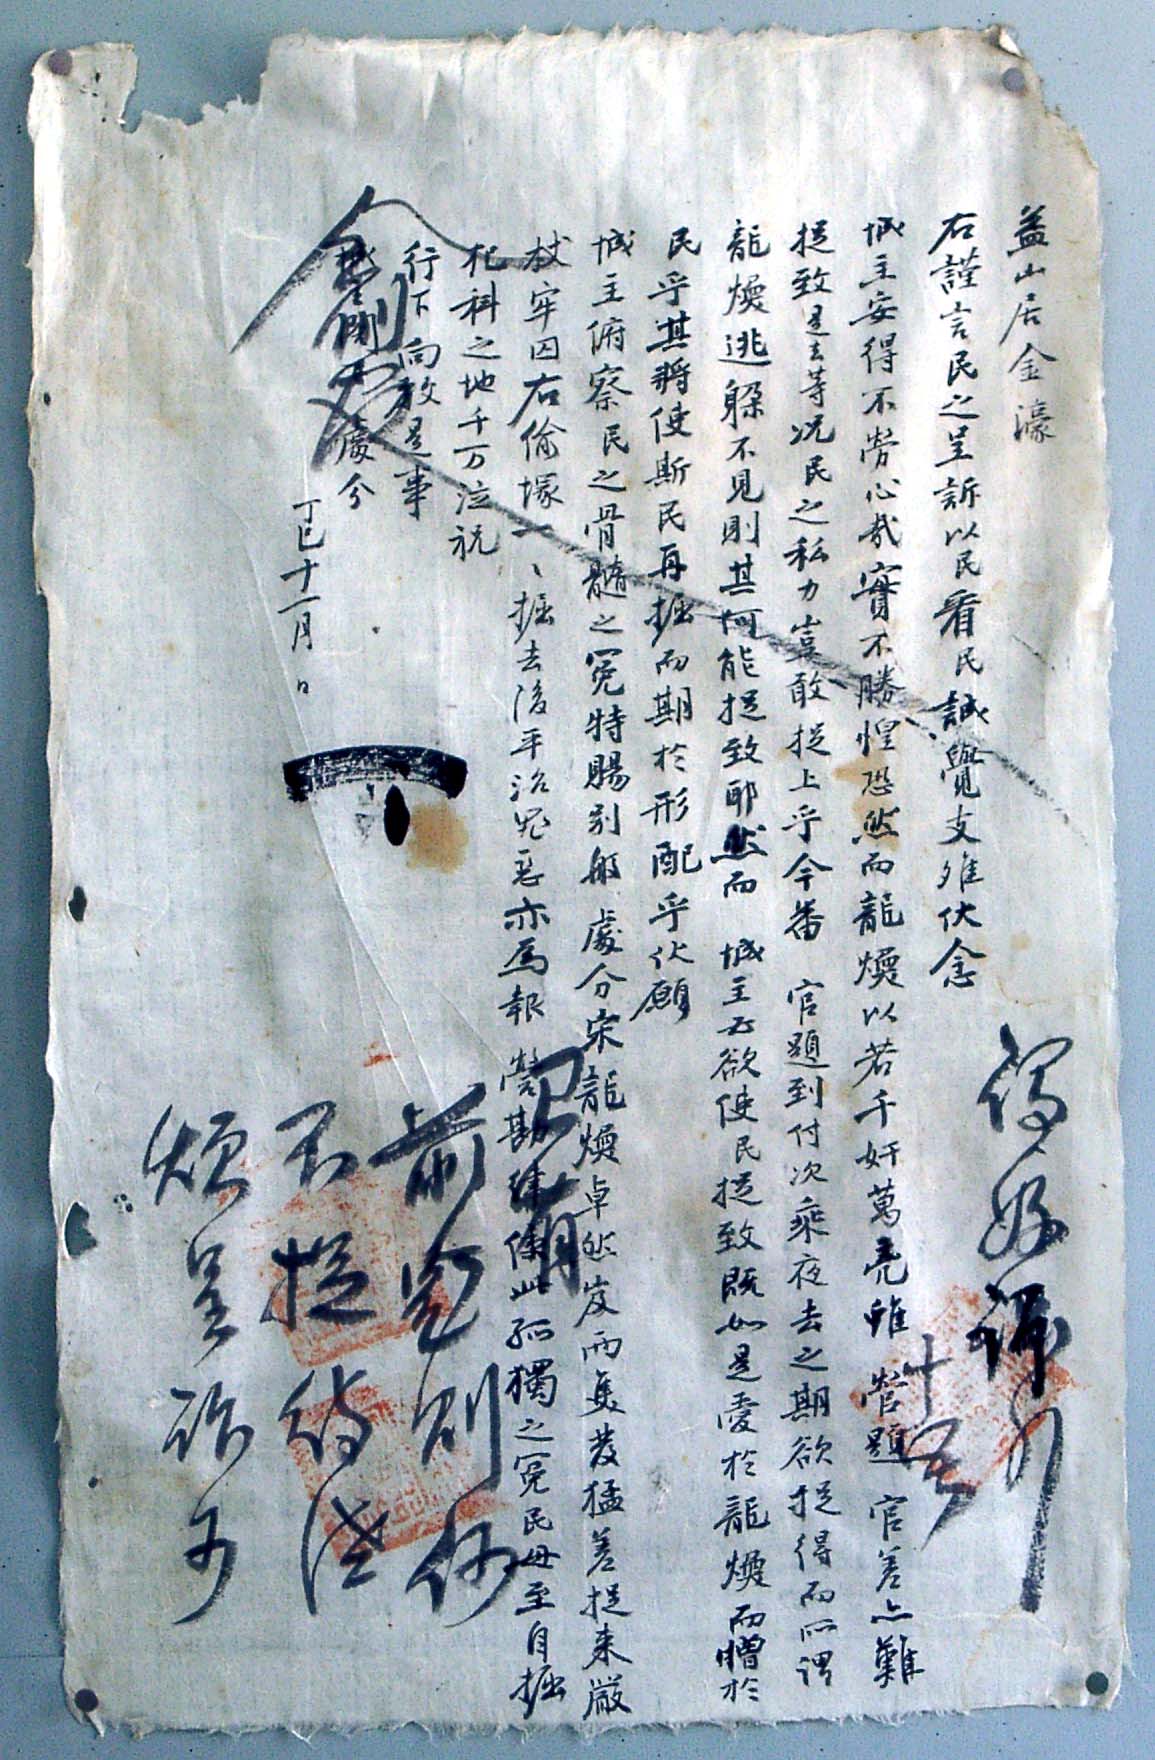 益山居金濠
右謹言民之呈訴以民看民誠覺支離伏念
城主安得不勞心哉實不勝惶恐然而龍煥以若千奸萬兇雖 營題 官差亦難
捉致是去等况民之私力豈敢捉上乎今番 官題到付次乘夜去之期欲捉得而所謂
龍煥逃躱不見則其何能捉致耶然而 城主又欲使民捉致既如是愛於龍煥而憎於
民乎其將使斯民再掘而期於形配乎伏願
城主俯察民之骨髓之冤特賜别般 處分宋龍煥卓然岌両隻發猛差捉来嚴
杖牢囚右偷塚一、掘去後平治冤惡亦爲報 營勘律俾此孤獨之冤民毋至自掘
犯科之地千万泣祝
行下向敎是事
處分
丁巳十一月 日
十五
前
則
不捉
煩呈訴